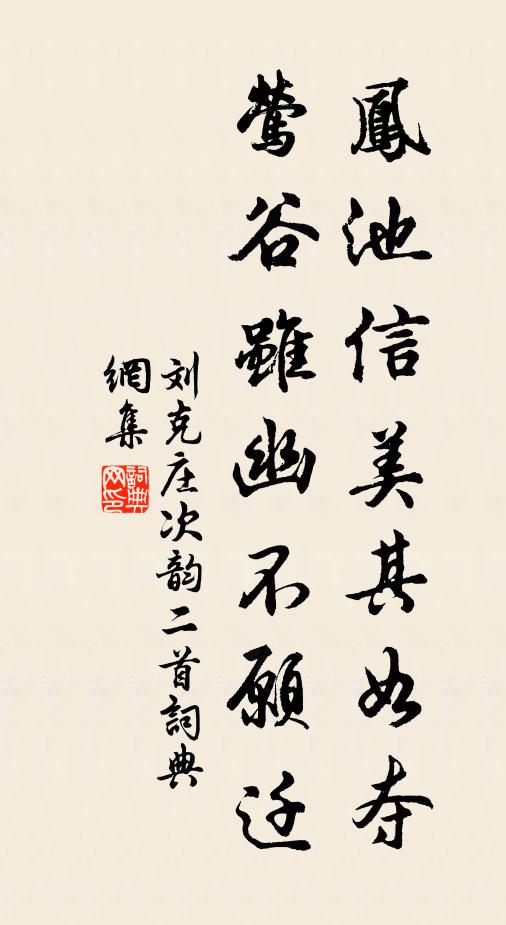 鳳池信美其如夺
莺谷雖幽不願迁
刘克庄次韵二首詞典
網集
詞典网印